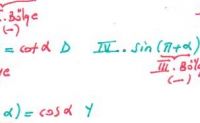 . Bölge
(-)
= cotα D IV. sin(π+α)
III. Bölge
(-)
α) = cosα Y